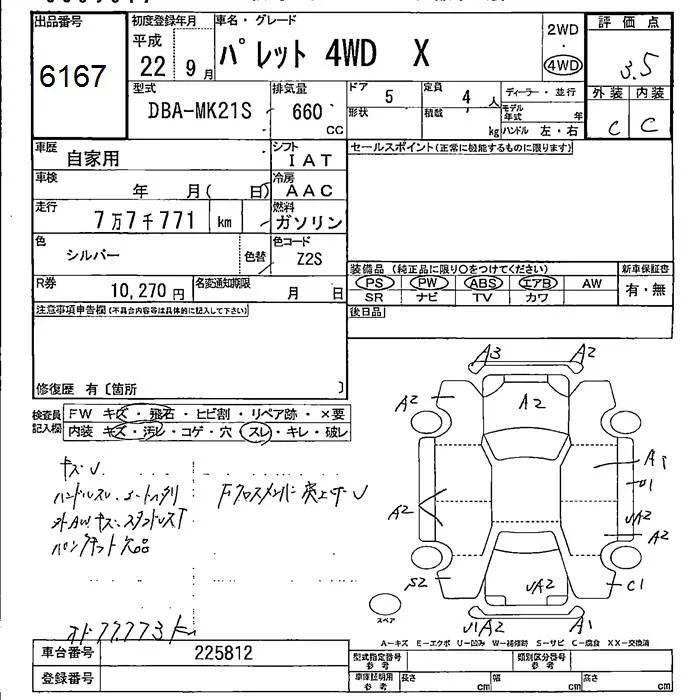 出品番号 初度登録年月 車名・グレード 評価点
6167 平成 22年 9月 パレット 4WD X 2WD ・ 4WD 3.5
型式 排気量 ドア 定員 ディーラー・並行 外装 内装
DBA-MK21S 660 CC 5 4人 モデル年式 年 C C
形状 積載 kg ハンドル 左・右
車歴 自家用 シフト IAT セールスポイント(正常に機能するものに限ります)
車検 年 月( 日) 冷房 AAC
走行 7万7千771 km 燃料 ガソリン
色 シルバー 色替 色コード Z2S
R券 10,270円 名変通知期限 月 日
装備品 (純正品に限り○をつけてください) 新車保証書
PS PW ABS エアB AW 有・無
SR ナビ TV カワ
注意事項申告欄(不具合内容等は具体的に記入して下さい) 後日品
修復歴 有〔箇所 〕
検査員記入欄 FW キズ・飛石・ヒビ割・リペア跡・×要
内装 キズ・汚レ・コゲ・穴・スレ・キレ・破レ
A3 A2
A2 A2
A1
U1
A2 UA2
A2
S2 UA2 C1
U1A2 A1
キズU
ハンドルスレ
Fクロスメンバー突上ゲU
外AWキズ
パンクキット欠品
オド77773k
スペア
A-キズ E-エクボ U-凹み W-補修跡 S-サビ C-腐食 XX-交換済
車台番号 225812 型式指定番号 参考 類別区分番号 参考
登録番号 車庫証明用 参考 長さ cm 幅 cm 高さ cm